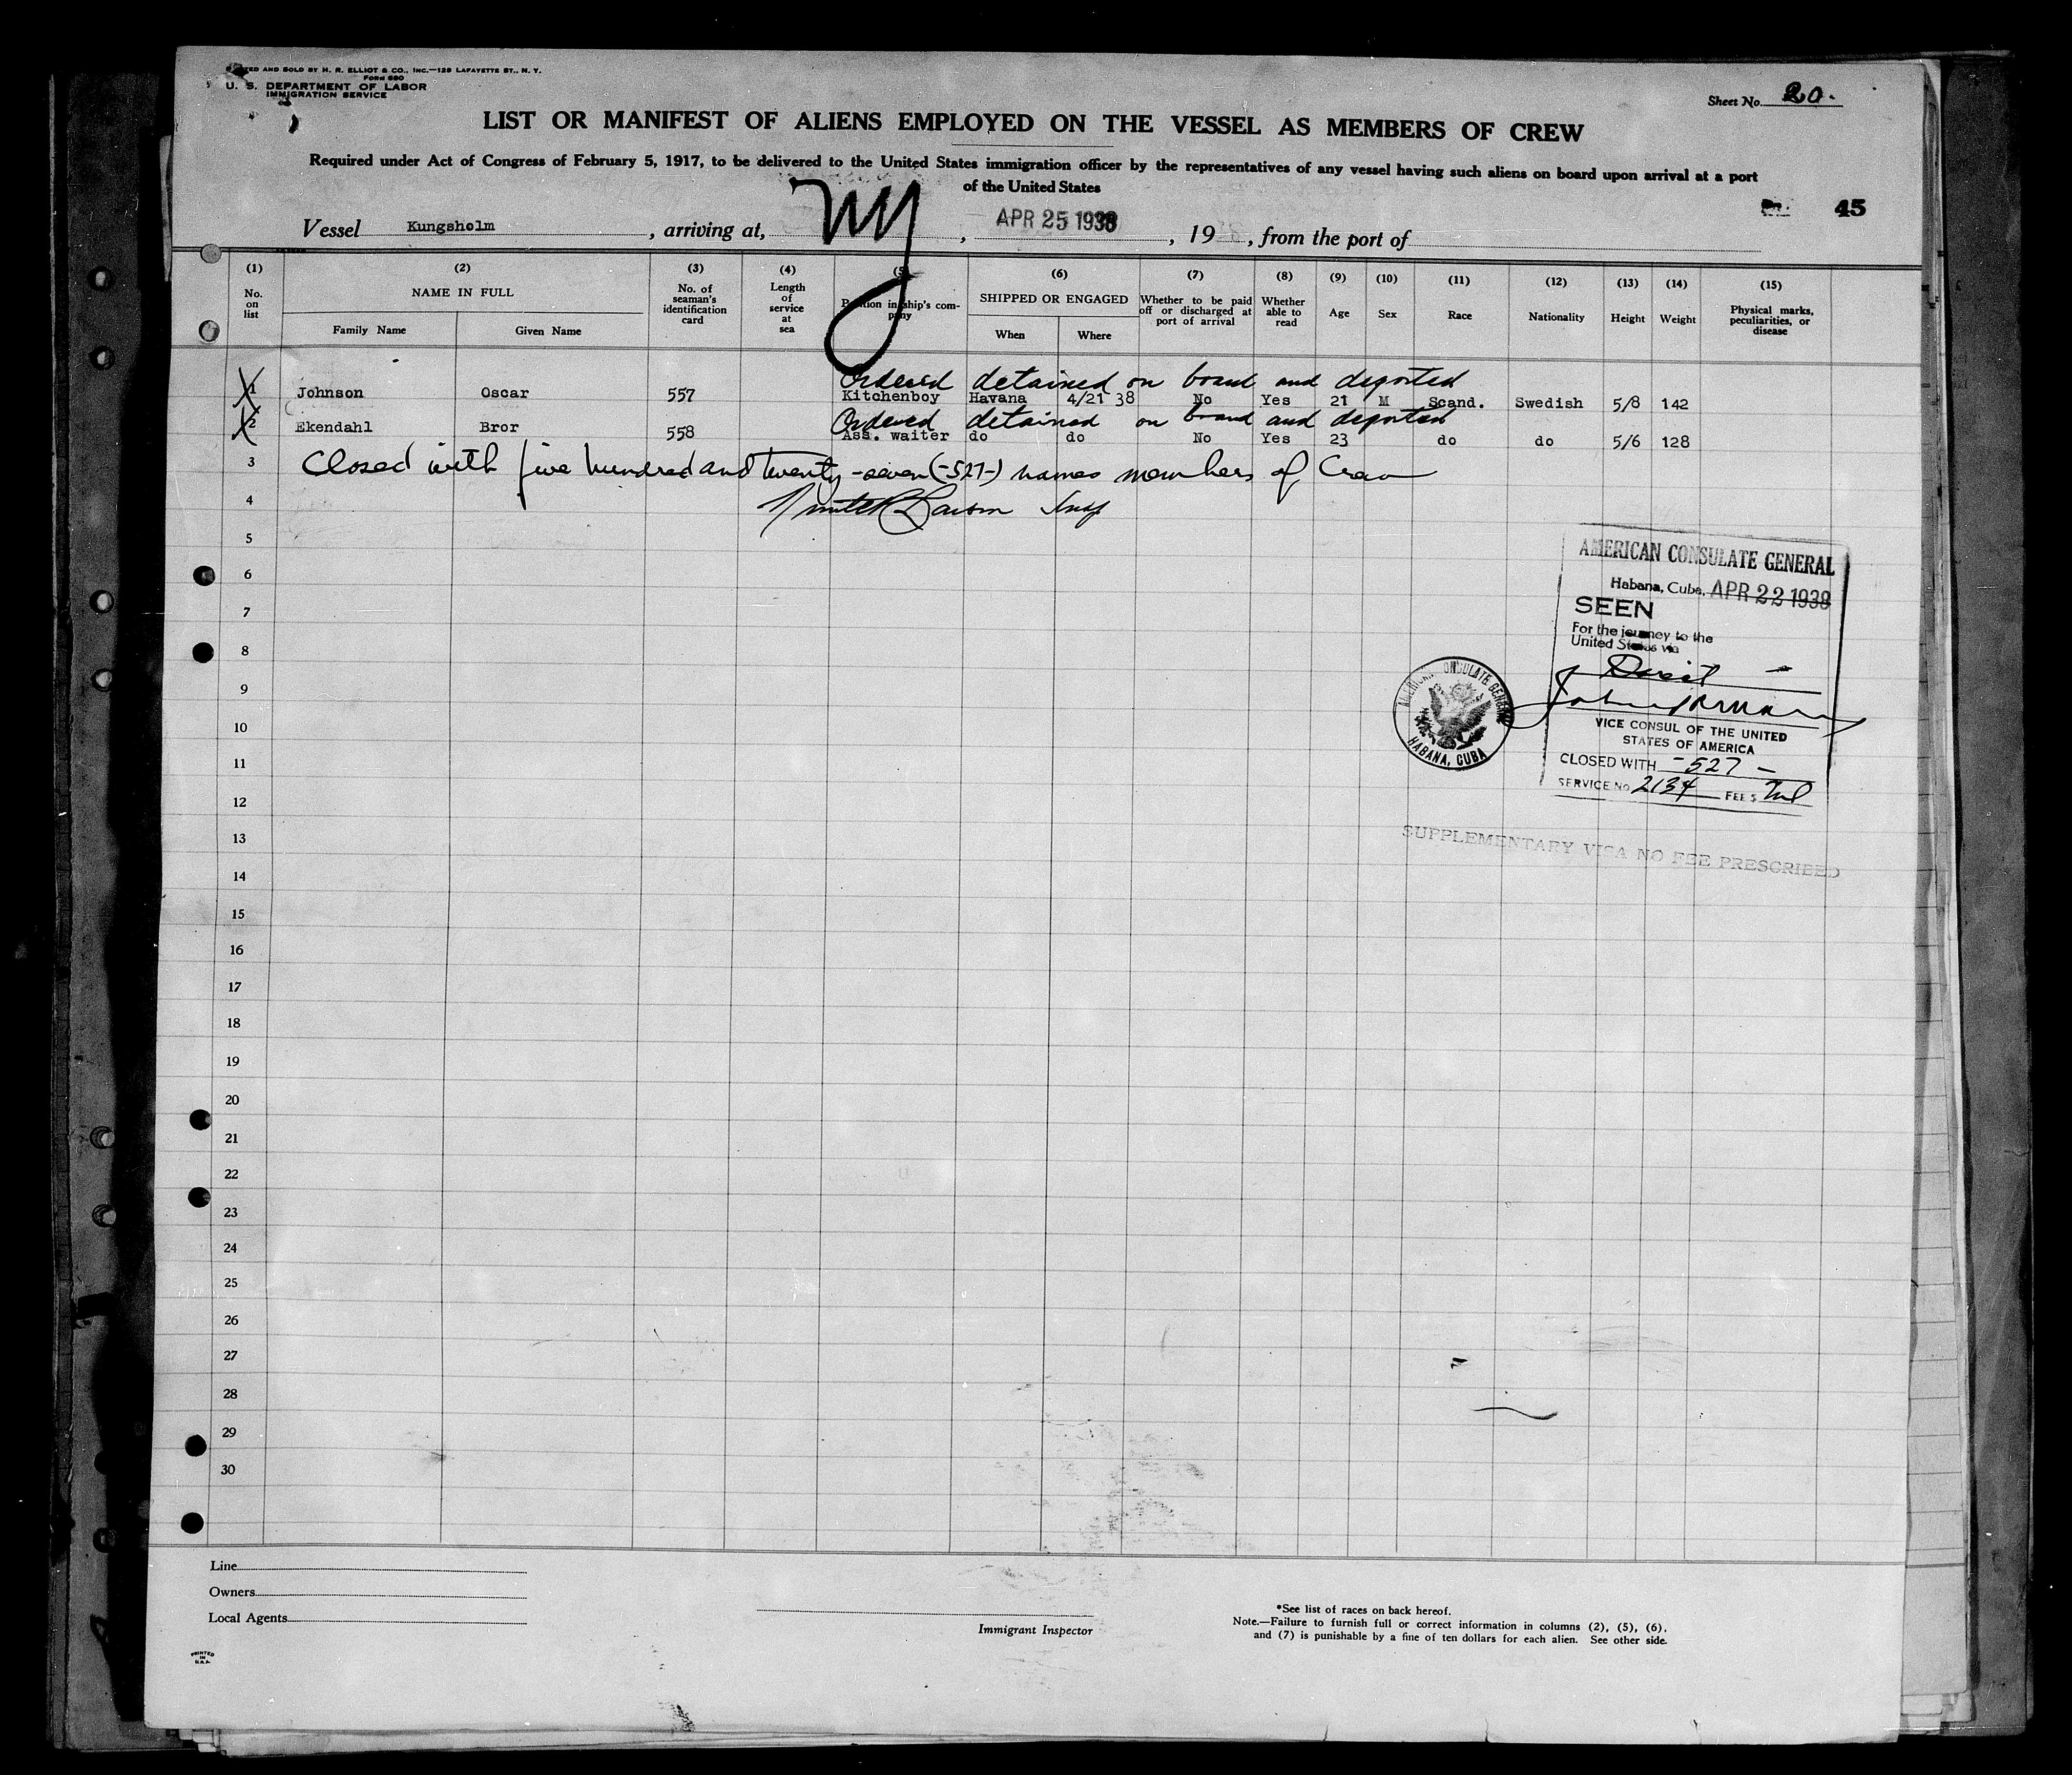 PRINTED AND SOLD BY H. R. ELLIOT & CO., INC.—129 LAFAYETTE ST., N. Y.
FORM 680
U. S. DEPARTMENT OF LABOR
IMMIGRATION SERVICE
Sheet No. 20.
LIST OR MANIFEST OF ALIENS EMPLOYED ON THE VESSEL AS MEMBERS OF CREW
Required under Act of Congress of February 5, 1917, to be delivered to the United States immigration officer by the representatives of any vessel having such aliens on board upon arrival at a port
of the United States
45
Vessel Kungsholm, arriving at, NY, APR 25 1938, 19 , from the port of
(1) (2) (3) (4) (5) (6) (7) (8) (9) (10) (11) (12) (13) (14) (15)
No. on list
NAME IN FULL
Family Name Given Name
No. of seaman's identification card
Length of service at sea
Position in ship's company
SHIPPED OR ENGAGED
When Where
Whether to be paid off or discharged at port of arrival
Whether able to read
Age
Sex
Race
Nationality
Height
Weight
Physical marks, peculiarities, or disease
Ordered detained on board and deported
1 Johnson Oscar 557 Kitchenboy Havana 4/21 38 No Yes 21 M Scand. Swedish 5/8 142
Ordered detained on board and deported
2 Ekendahl Bror 558 Ass. waiter do do No Yes 23 do do 5/6 128
3 Closed with five hundred and twenty-seven (-527-) names members of Crew
4 Insp
5
6
7
8
9
10
11
12
13
14
15
16
17
18
19
20
21
22
23
24
25
26
27
28
29
30
AMERICAN CONSULATE GENERAL
Habana, Cuba, APR 22 1938
SEEN
For the journey to the
United States via
Direct
VICE CONSUL OF THE UNITED
STATES OF AMERICA
CLOSED WITH -527-
SERVICE No. 2134 FEE $ Nil
AMERICAN CONSULATE GENERAL
HABANA, CUBA
SUPPLEMENTARY VISA NO FEE PRESCRIBED
Line
Owners
Local Agents
Immigrant Inspector
*See list of races on back hereof.
Note.—Failure to furnish full or correct information in columns (2), (5), (6),
and (7) is punishable by a fine of ten dollars for each alien. See other side.
PRINTED
IN
U.S.A.